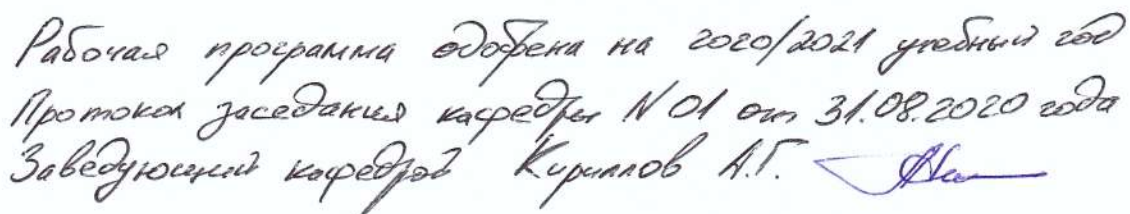 Рабочая программа одобрена на 2020/2021 учебный год
Протокол заседания кафедры N 01 от 31.08.2020 года
Заведующий кафедрой Кириллов А.Г.